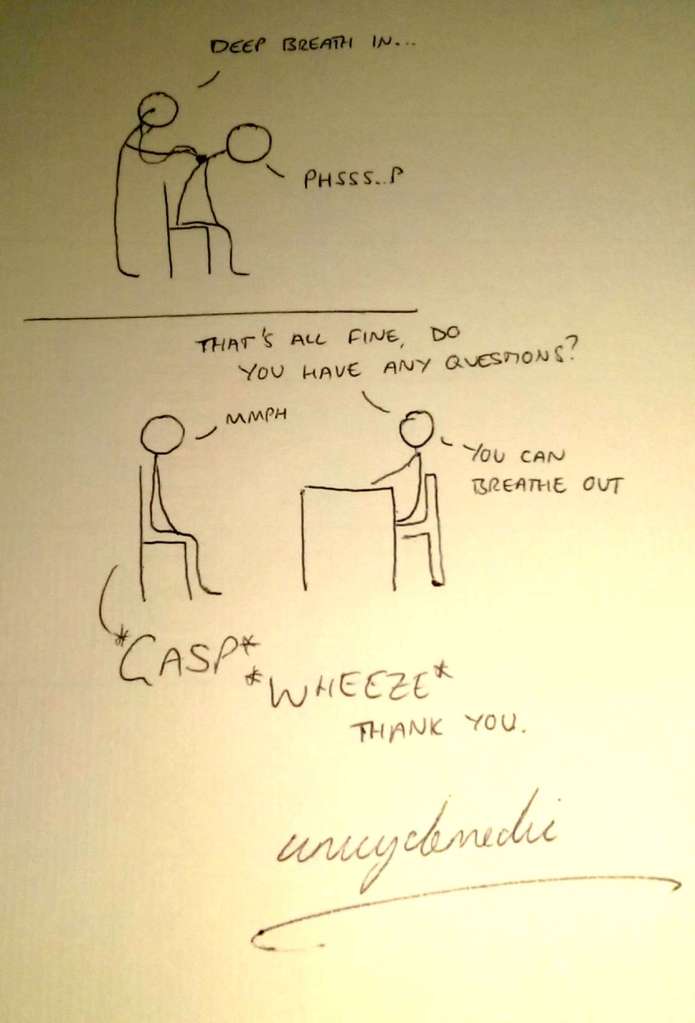 DEEP BREATH IN...
PHSSS..P
THAT'S ALL FINE, DO
YOU HAVE ANY QUESTIONS?
MMPH
YOU CAN
BREATHE OUT
*GASP*
*WHEEZE*
THANK YOU.
unicyclemedic